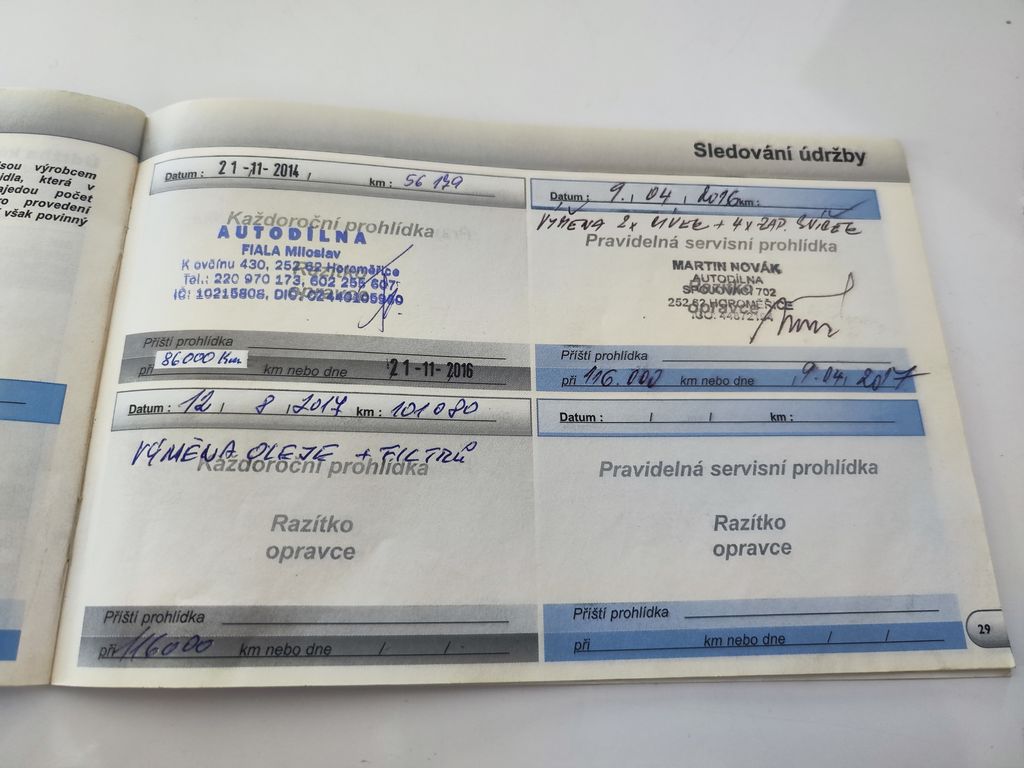 sou výrobcem
idla, která v
ajedou počet
ro provedení
však povinný
Sledování údržby
Datum : 21-11-2014 / km : 56 139
Každoroční prohlídka
AUTODÍLNA
FIALA Miloslav
K ovčínu 430, 252 62 Horoměřice
Tel.: 220 970 173, 602 255 607
IČ: 10215808, DIČ: CZ440105960
Razítko
opravce
Příští prohlídka
při 86000 Km km nebo dne 21-11-2016
Datum : 9. 04, 2016 km :
VÝMĚNA 2x + 4x ZAP. SVÍČEK
Pravidelná servisní prohlídka
MARTIN NOVÁK
AUTODÍLNA
702
252 62 HOROMĚŘICE
Razítko
opravce
Příští prohlídka
při 116.000 km nebo dne 9.04, 2017
Datum : 12 / 8 / 2017 km : 101080
VÝMĚNA OLEJE + FILTRŮ
Každoroční prohlídka
Razítko
opravce
Příští prohlídka
při 116000 km nebo dne / /
Datum : / / km :
Pravidelná servisní prohlídka
Razítko
opravce
Příští prohlídka
při km nebo dne / /
29